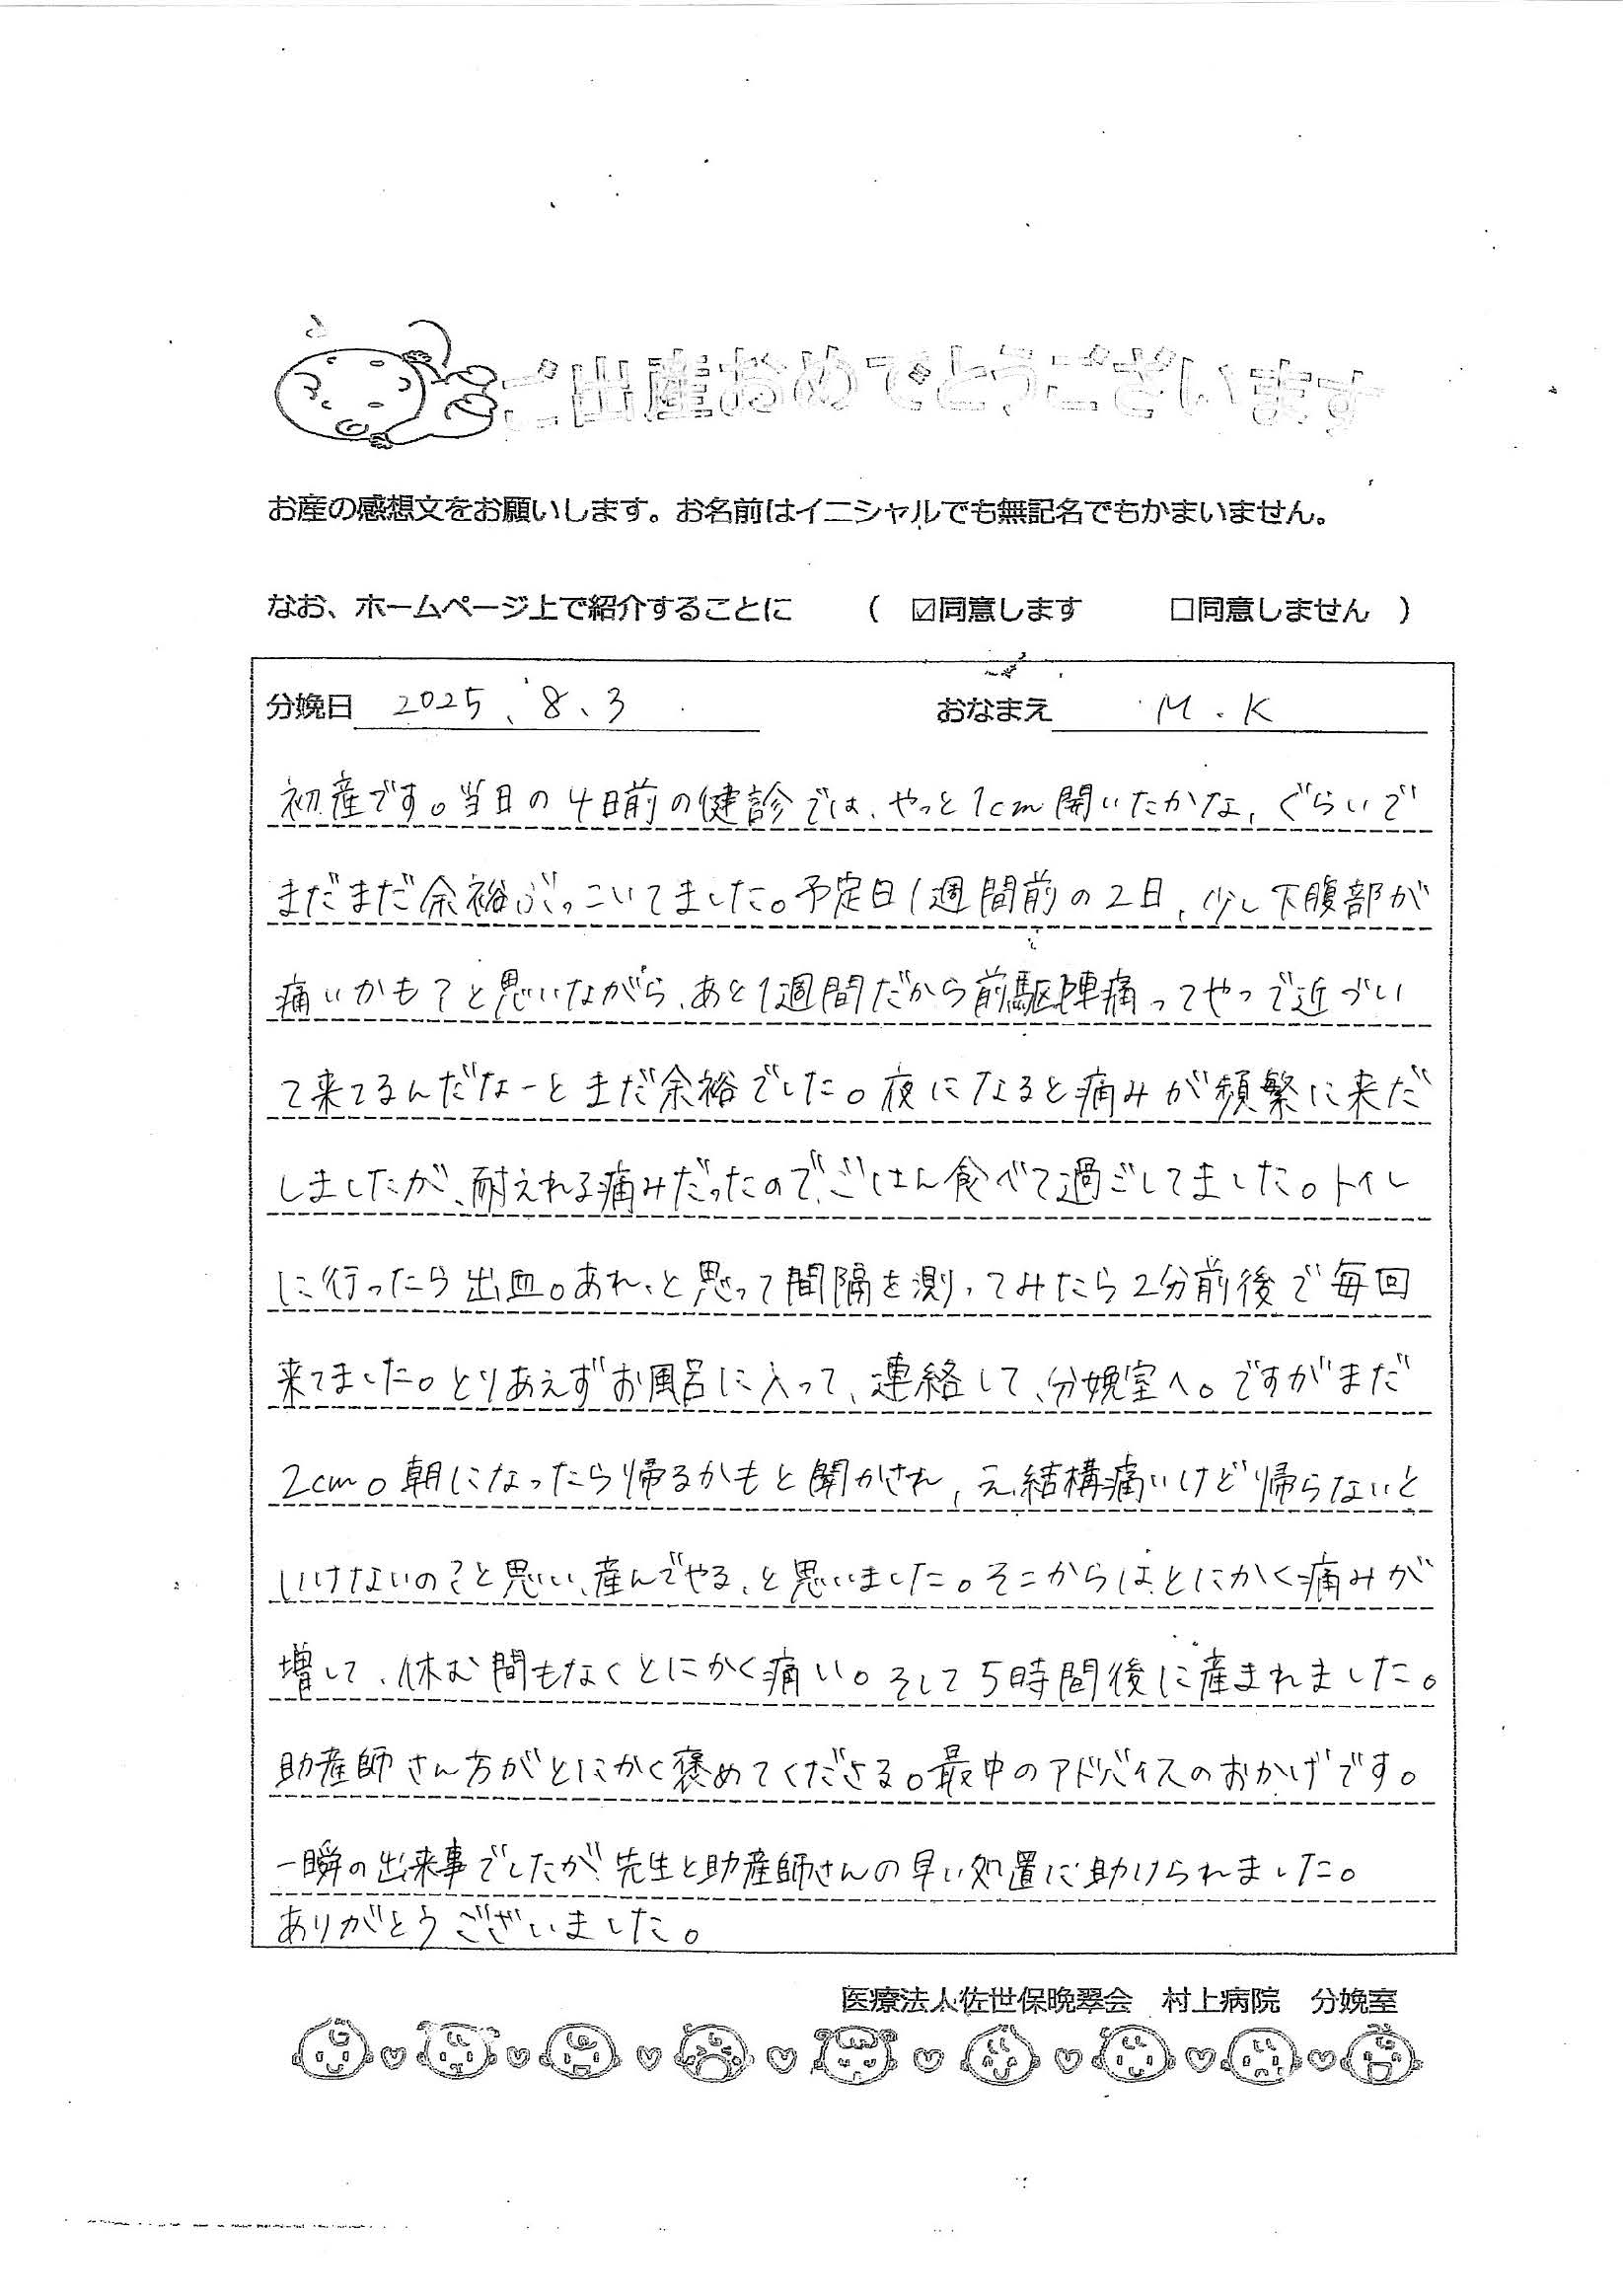 ご出産おめでとうございます
お産の感想文をお願いします。お名前はイニシャルでも無記名でもかまいません。
なお、ホームページ上で紹介することに （ ☑同意します □同意しません ）
分娩日 2025、8、3 おなまえ M.K
初産です。当日の4日前の健診では、やっと1cm開いたかな、ぐらいで
まだまだ余裕ぶっこいてました。予定日1週間前の2日、少し下腹部が
痛いかも？と思いながら、あと1週間だから前駆陣痛ってやつで近づい
て来てるんだなーとまだ余裕でした。夜になると痛みが頻繁に来だ
しましたが、耐えれる痛みだったので、ごはん食べて過ごしてました。トイレ
に行ったら出血。あれ、と思って間隔を測ってみたら2分前後で毎回
来てました。とりあえずお風呂に入って、連絡して、分娩室へ。ですがまだ
2cm。朝になったら帰るかもと聞かされ、え、結構痛いけど帰らないと
いけないの？と思い、産んでやる、と思いました。そこからは、とにかく痛みが
増して、休む間もなくとにかく痛い。そして5時間後に産まれました。
助産師さん方がとにかく褒めてくださる。最中のアドバイスのおかげです。
一瞬の出来事でしたが、先生と助産師さんの早い処置に助けられました。
ありがとうございました。
医療法人佐世保晩翠会 村上病院 分娩室